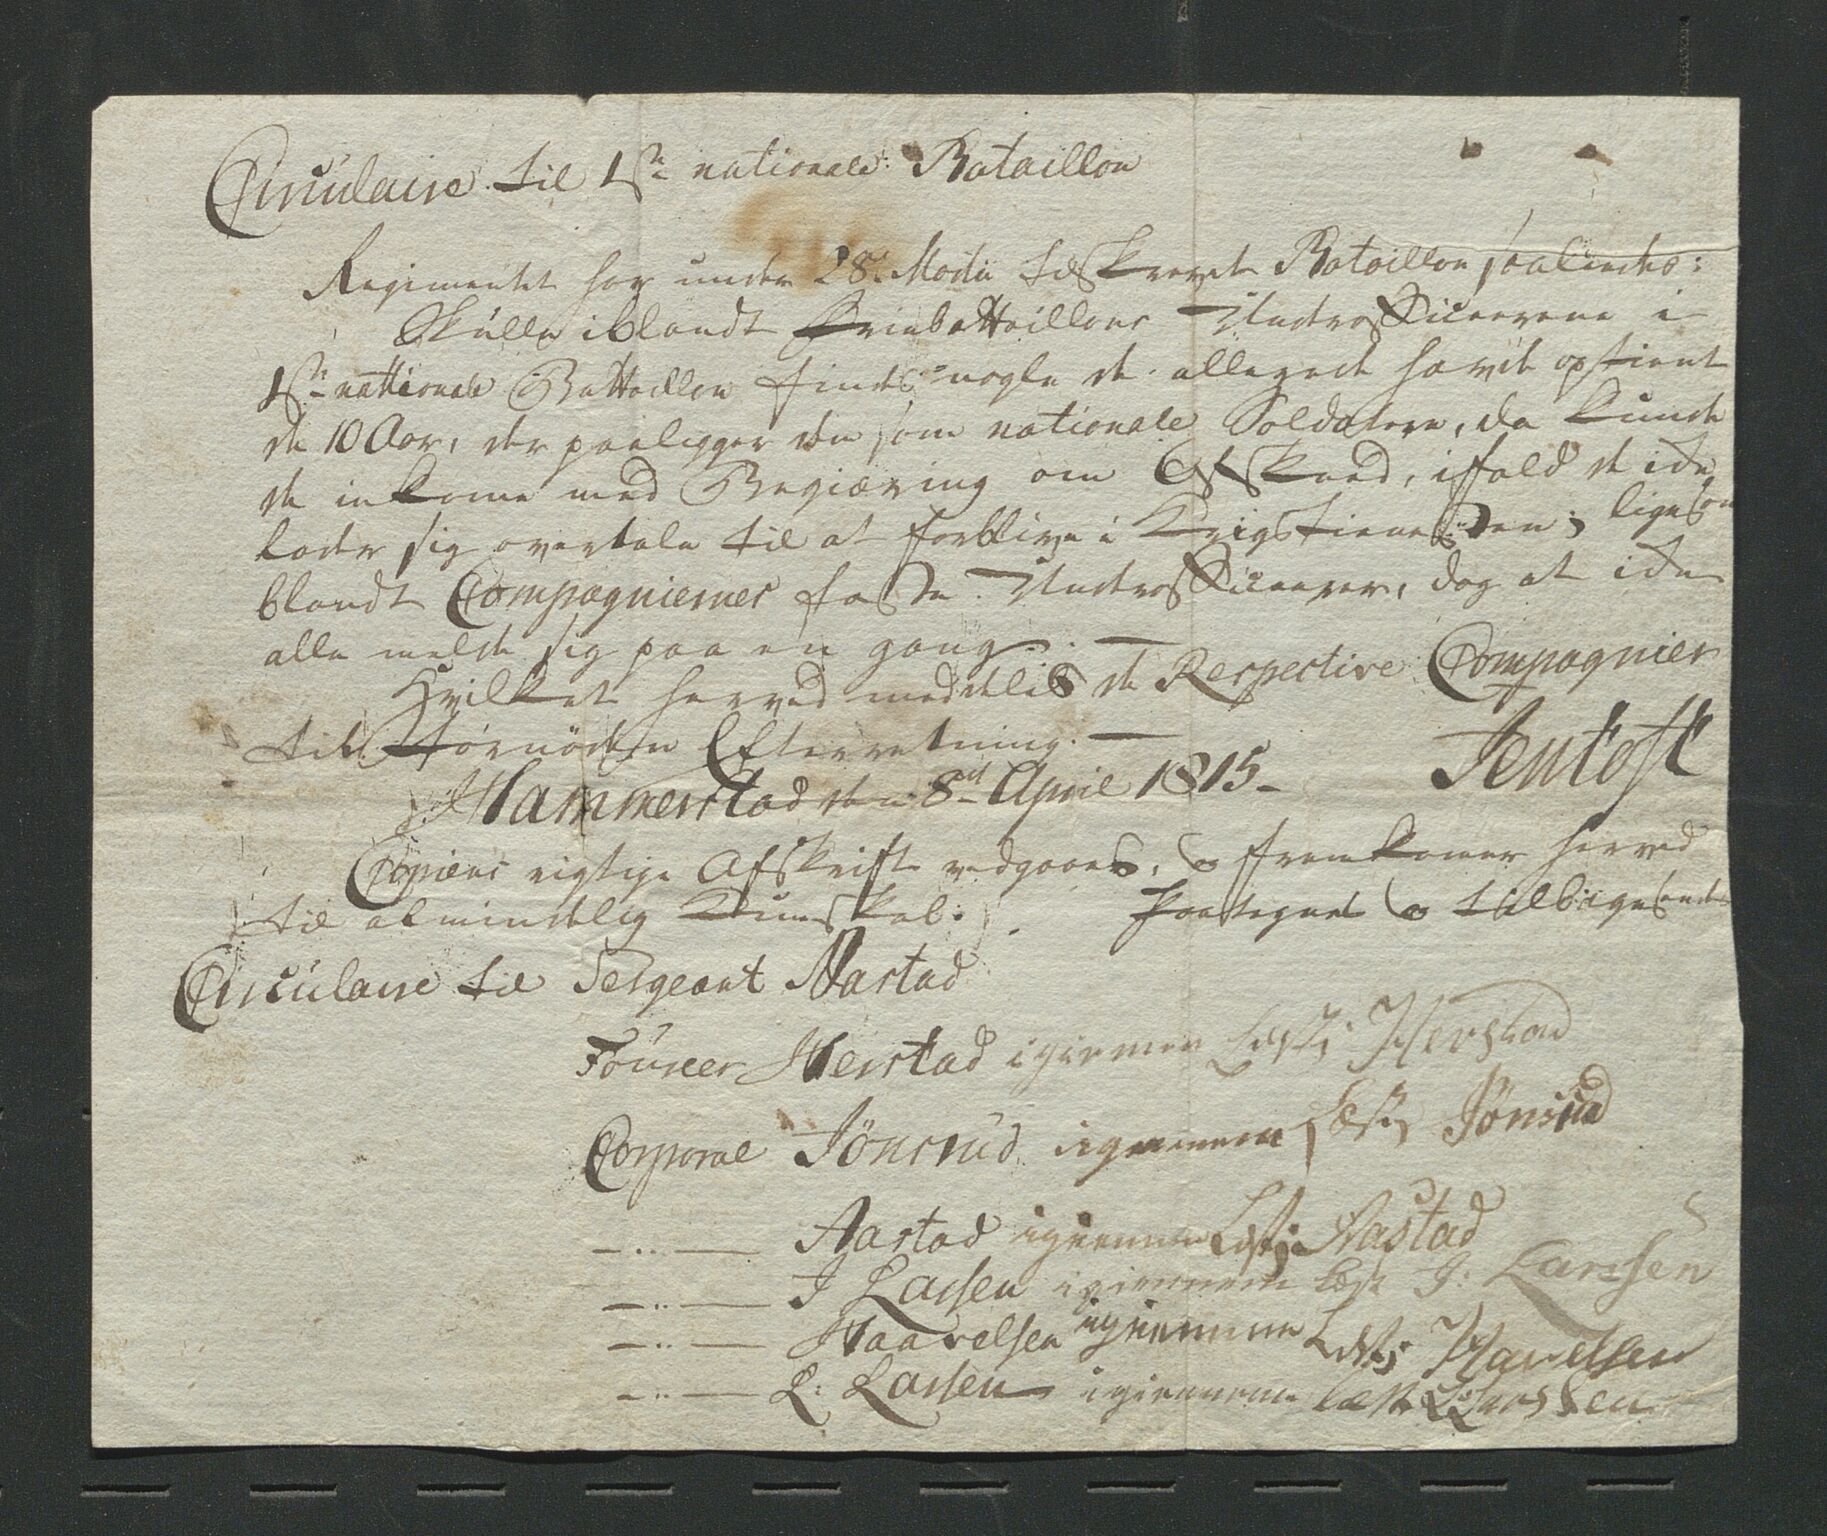 Circulaire til 1ste nationale Bataillon
Regimentet har under 28. Marti tilskrevet Bataillon saaledes:
Skulle iblandt Bataillons Underofficererne i
1ste nattionale Battaillon findes nogle der allerede havde optient
de 10 Aar, der paaligger dem som nationale Soldater, da kunde
de inkome med Begiæring om Afskeed, ifald de ike
lader sig overtale til at forblive i Krigstienesten; ligesom
blandt Compagniernes faste Underofficerer, dog at ike
alle melde sig paa en gang. —
Hvilket herved meddeles de Respective Compagnier
til fornöden Efterretning. —
Hammerstad den 8de April 1815 - Jentoft
Copiens rigtige Afskrift vedgaaes, og fremkomer herved
til almindelig Kunskab. Paategnet og tilbagesendes
Circulaire til Sergeant Aastad
Foureer Herstad igiennem Læst Herstad
Corporal Jönsrud igiennem Læst Jönsrud
— .. — Aastad igiennem Læst Aastad
— .. — J Lassen igiennem læst J: Larssen
— .. — Haavelsen igiennem Læst Havelsen
— .. — L: Lassen igiennem læst L Larssen